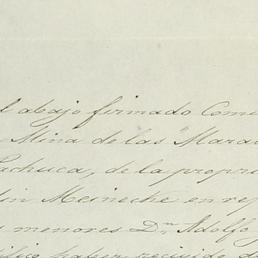 l abajo firmado Com
Mina de las Mara
achuca, de la propie
in Mesneche en re
menores Dn Adolfo
haber recibido d